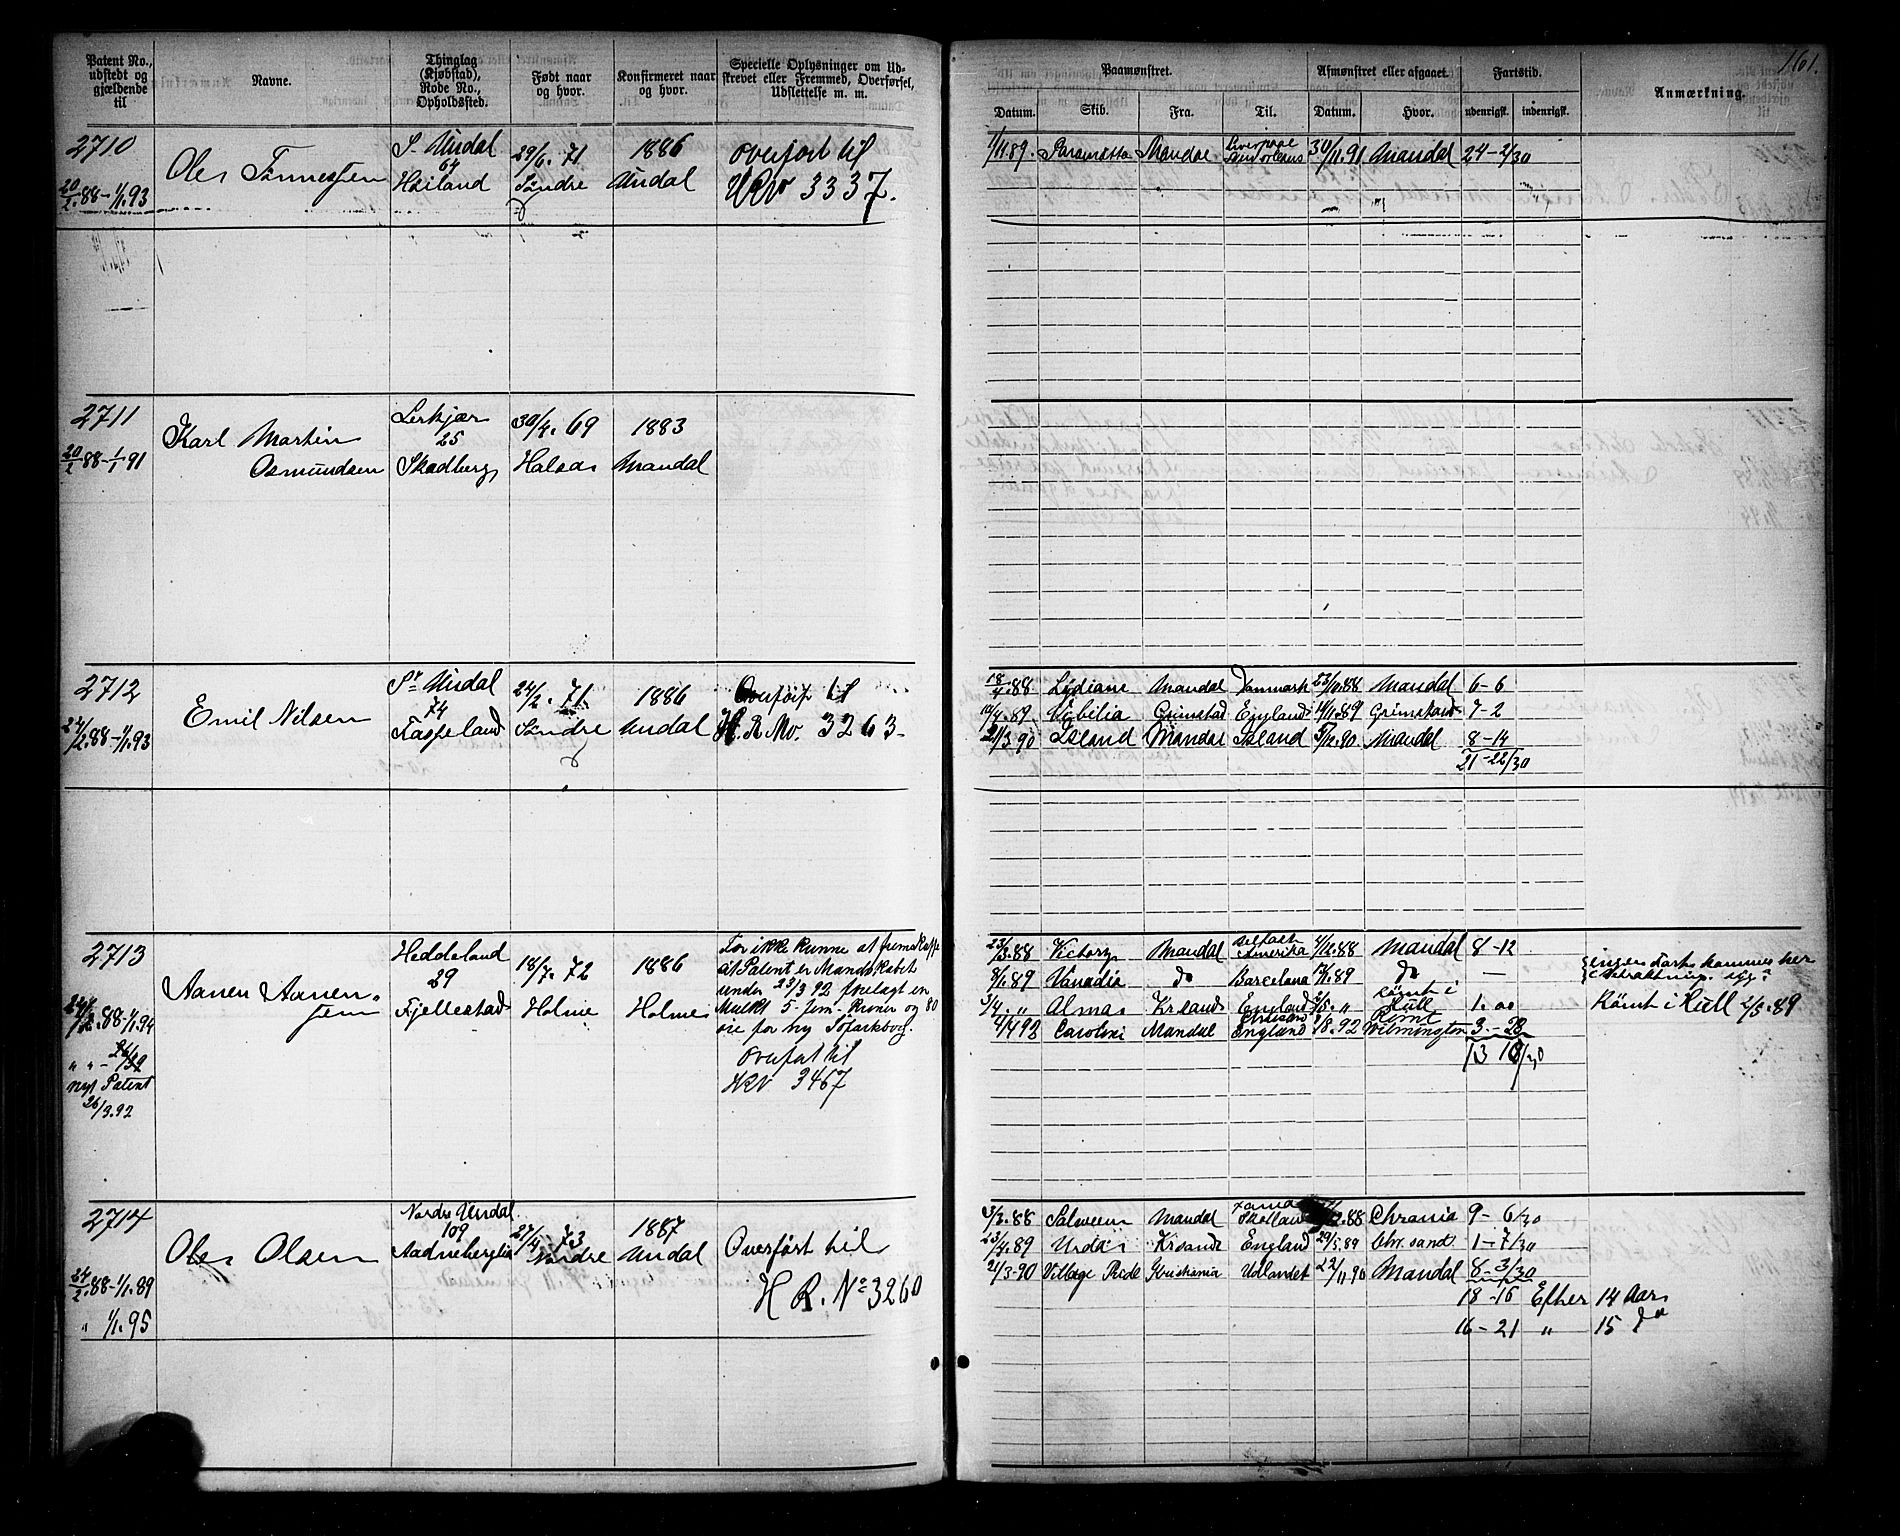 Patent No., udstedt og gjældende til
Navne.
Thinglag (Kjøbstad), Rode No., Opholdssted.
Født naar og hvor.
Konfirmeret naar og hvor.
Specielle Oplysninger om Udskrevet eller Fremmed, Overførsel, Udslettelse m. m.
Paamønstret.
Afmønstret eller afgaaet.
Fartstid.
Anmærkning.
161.
Datum.
Skib.
Fra.
Til.
Datum.
Hvor.
udenrigsk.
indenrigsk.
2710
20/2.88-1/1.93
Ole Tønnessen
S. Undal
64
Høiland
29/6. 71
Søndre
1886
Undal
Overført til
3337.
1/11.89. Paramatta Mandal Liverpool New Orleans 30/11.91 Mandal 24-2/30
2711
20/2 88-1/1 91
Karl Martin
Osmundsen
Lerkjær
25
Skadberg
30/4. 69
Halsaa
1883
Mandal
2712
24/2.88-1/1.93
Emil Nilsen
Sr. Undal
74
Faspeland
24/2. 71
Søndre
1886
Undal
Overført til
H. R. No. 3263
18/4.88 Lydiane Mandal Danmark 23/10.88 Mandal 6-6
10/4.89. Vibilia Grimstad England 14/11.89 Grimstad 7-2
21/3 90 Island Mandal Island 5/12.90. Mandal 8-14
21-22/30
2713
24/2.88-1/1.94
nyt Patent
26/3.92
Aanen Aanensen
Heddeland
29
Fjellestad
18/7. 72
Holme
1886
Holme
For ikke kunne at fremskaffe
sit Patent er Mandskabet
under 23/3 92 forelagt en
Mulkt 5-fem-Kroner og 80
øre for ny Søfartsbog.
Overført til
3467
23/3.88 Victory Mandal Belfast Amerika 4/12.88 Mandal 8-12
8/1.89 Vanadia do Barcelona 89 do — ingen Fart kommer her
3/4. " Alma Krsand England 2/5. " rømt i Hull 1.00 Rømt i Hull 2/5.89
4/4 92 Caroline Mandal England 8.92 Rømt Wilmington 3.-28
13 10/30
2714
24/2.88-1/1.89
" 1/1.95
Ole Olsen
Nordre Undal
109
Aadneberglia
27/4 73
Nordre
1887
Undal
Overført til
H R. No 3260
3/3.88 Salveem Mandal Skotland 88 Chrania 9-6/30
23/4.89 Urda Krsand England 29/5.89 Chr.sand 1-7/30
2/3-90 Village Pride Kristiania Udlandet 22/11 90 Mandal 8-3/30
18-16 Efter 14 Aar
16-21 " 15 do